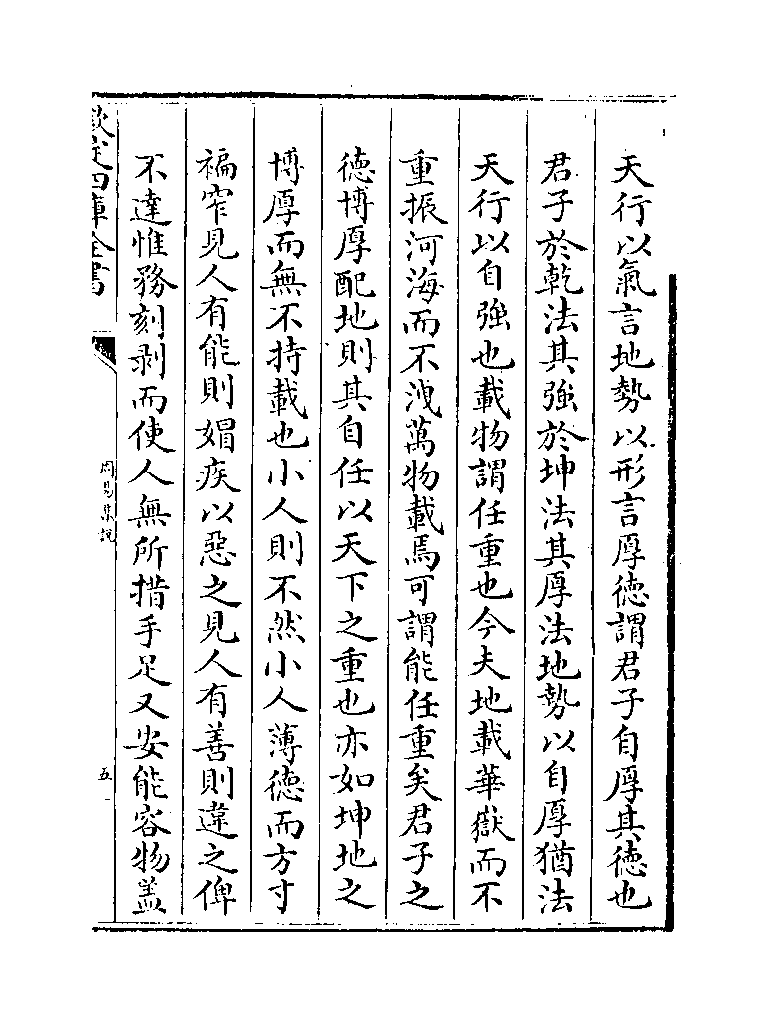 天行以氣言地勢以形言厚徳謂君子自厚其徳也
君子於乾法其強於坤法其厚法地勢以自厚猶法
天行以自強也載物謂任重也今夫地載華嶽而不
重振河海而不洩萬物載焉可謂能任重矣君子之
徳博厚配地則其自任以天下之重也亦如坤地之
博厚而無不持載也小人則不然小人薄徳而方寸
褊窄見人有能則媢疾以惡之見人有善則違之俾
不達惟務刻剥而使人無所措手足又安能容物盖
欽定四庫全書
周易集說
五